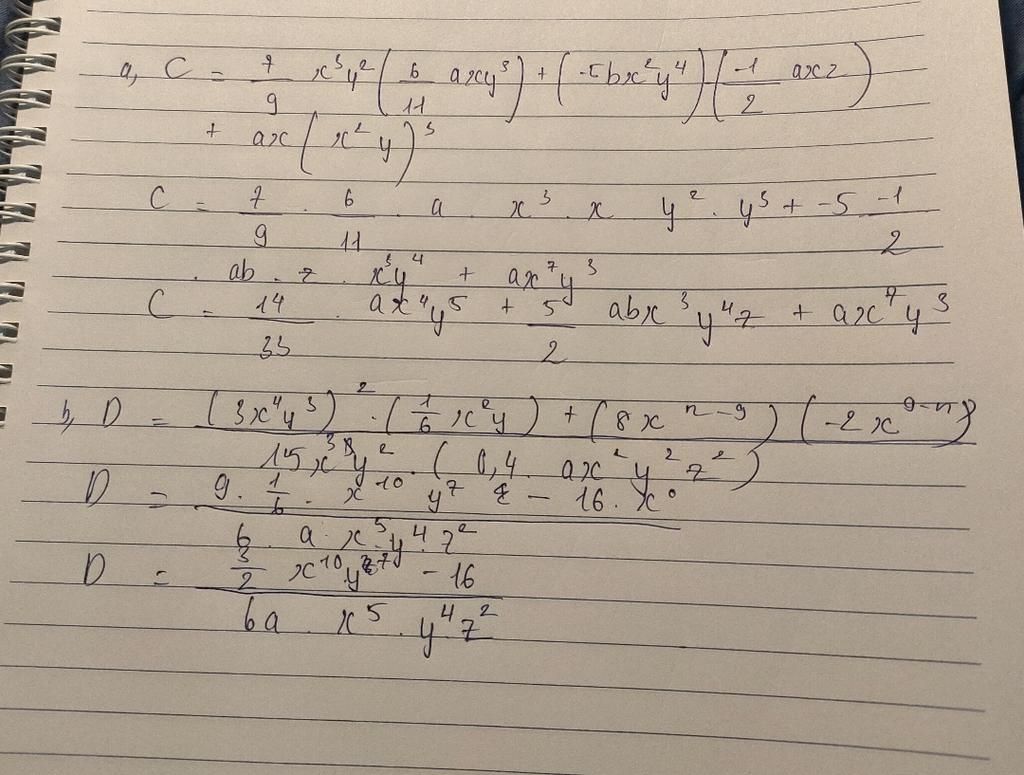 a, C = 7/9 x³y² (6/11 axy³) + (-5bx²y⁴) (-1/2 axz)
+ ax (x² y)³
C = 7/9 . 6/11 . a . x³ . x y² . y³ + -5 -1/2
. ab . z . x³y⁴ + ax⁷y³
C = 14/33 . ax⁴y⁵ + 5/2 abx³y⁴z + ax⁷y³
b, D = (3x⁴y³)² . (1/6 x²y) + (8x ⁿ⁻⁹) (-2x⁹⁻ⁿ)
15x³y² . (0,4 ax²y²z²)
D = 9 . 1/6 . x¹⁰ y⁷ - 16 . x⁰
6 . a . x⁵ . y⁴ . z²
D = 3/2 x¹⁰y⁷ - 16
6a . x⁵ . y⁴z²